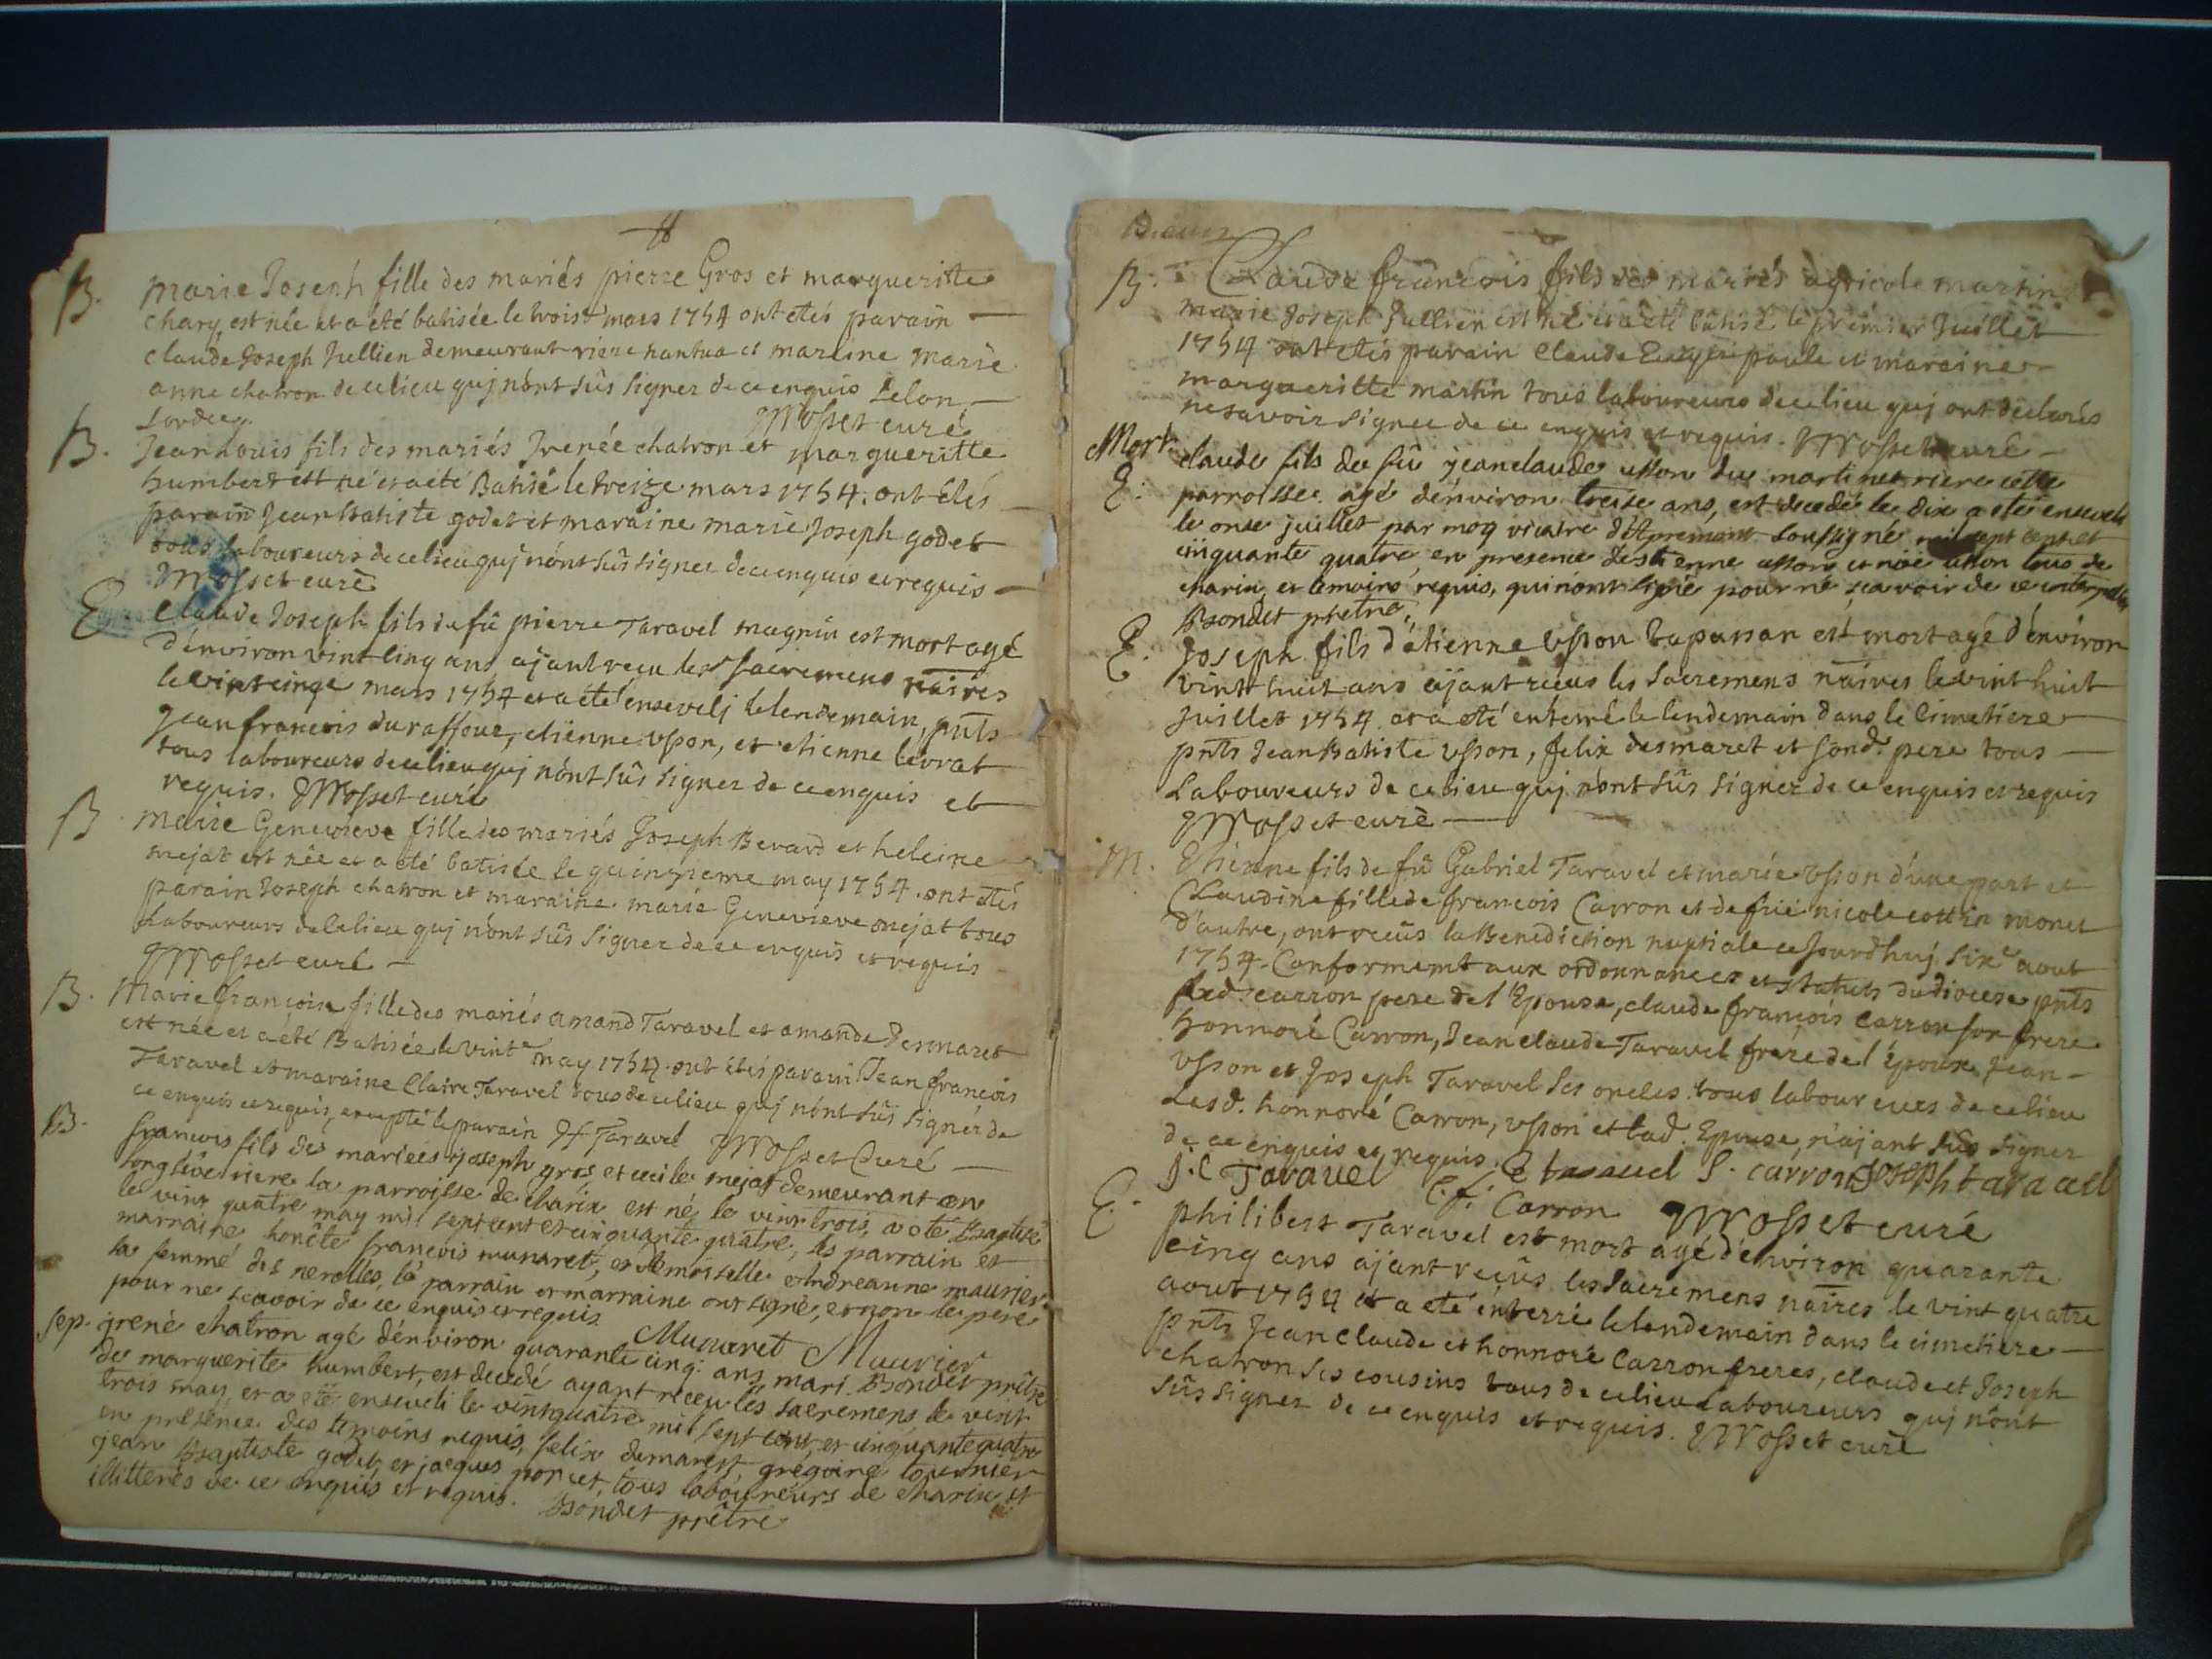 B. Marie Joseph fille des mariés pierre Gros et margueritte
chary est née et a eté batisée le trois mars 1754 ont etés parain
claude Joseph Jullien demeurant riere nantua et maraine marie
anne chatron de ce lieu quj nónt sûs signer de ce enquis selon
Lordce. Mosset curé
B. Jean Louis fils des mariés Irenée chatron et margueritte
humbert est né et a eté Batisé le treize mars 1754. ont étés
parain Jean Batiste godet et maraine marie Joseph godet
tous laboureurs de ce lieu quj nónt sûs signer de ce enquis et requis
Mosset curé
E. Claude Joseph fils du fû pierre Taravel magnin est mort agé
d'énviron vint cinq ans ajant reçu les sacremens naires
le vint cinqe mars 1754 et a été ensevelj le lendemain, pnts
Jean francois duraffour, etiénne usson, et etienne levrat
tous laboureurs de ce lieu quj nónt sûs signer de ce enquis et
requis. Mosset curé
B. Marie Genevieve fille des mariés Joseph Berard et heleine
mejat est née et a eté batisée le quinzieme may 1754. ont etés
parain Joseph chatron et maraine marie Genevieve mejat tous
Laboureurs de ce lieu quj nónt sûs signer de ce enquis et requis
Mosset curé
B. Marie françoise fille des mariés amand Taravel et amande Desmaret
est née et a eté Batisée le vinte may 1754. ont étés parain Jean francois
Taravel et maraine Claire Taravel tous de ce lieu quj nónt sûs signér de
ce enquis et requis, excepté le parain Jf Taravel Mosset Curé
B. francois fils des mariées joseph gros, et cecile mejat demeurant en
longsûe riere la parroisse de charix est né le vint trois, a oté Baptisé
le vint quatre may mil sept cent et cinquante quatre, les parrain et
marraine honête francois munaret, et demoiselle andreanne maurier
sa femme des nerolles, le parrain et marraine ont signé, et non le pere
pour ne scavoir de ce enquis et requis. Munaret Maurier
Sep. jrené chatron agé d'énviron quarante cinq: ans, mari Bondet prêtre
de marguerite humbert, est decedé ayant receu les sacremens le vint
trois may, et a été enseveli le vintquatre mil sept cent, et cinquante quatre
en présence des temoins requis, felix demarest grégoire tournier
jean Baptiste godet, et jacques poncet, tous laboureurs de charix et
illitterés de ce enquis et requis. Bondet prêtre
B. Claude francois fils des mariés agricole martin
marie Joseph Jullien est né et a eté bâtisé le prémier Juillet
1754 ont etés parain Claude paule et maraine
margueritte martin tous laboureurs de ce lieu quj ont declarés
ne savoir signer de ce enquis et requis. Mosset curé
Mort. claude fils de fû jean claude usson du martinet riere cette
E: parroisse agé d'énviron treise ans, est decedé le dix a eté enseveli
le onse juillet par moy vicaire d'Apremont soussigné mil sept cent et
cinquante quatre, en presence d'estienne usson et noé usson tous de
charix, et temoins requis, qui nont signé pour ne scavoir de ce interpellés
Bondet prêtre
E. Joseph fils d'étienne usson tapassan est mort agé d'énviron
vint huit ans ajant reçus les sacremens naires le vint huit
Juillet 1754. et a eté enterré le lendemain dans le cimetiere
pnts Jean Batiste usson, felix desmaret et sond. pere tous
Laboureurs de ce lieu quj nónt sûs signer de ce enquis et requis
Mosset curé
M. Etiénne fils de fû Gabriel Taravel et marie usson d'une part et
Claudine fille de francois Carron et de fuë nicole cottin monet
d'autre, ont recûs la Benediction nuptiale ce jourd'huj sixe aout
1754. Conformemt aux ordonnances et statuts du diocese pnts
fred. carron pere de l'Epouse, claude françois carron son frere
Honnoré Carron, Jean claude Taravel frére de l'Epoux, Jean
usson et Joseph Taravel ses oncles. tous laboureurs de ce lieu
Lesd. honnoré Carron, usson et lad. Epouse, n'ajant sûs signer
de ce enquis et requis.
j.C Taravel E taravel f. carron joseph taravel
C.f. Carron Mosset curé
E. philibert Taravel est mort agé d'énviron quarante
cinq ans ajant reçûs les sacremens naires le vint quatre
aout 1754 et a eté énterré le lendemain dans le cimetiere
pnts Jean Claude et honnoré Carron freres, claude et Joseph
chatron ses cousins tous de ce lieu Laboureurs quj nónt
sûs signer de ce enquis et requis. Mosset curé